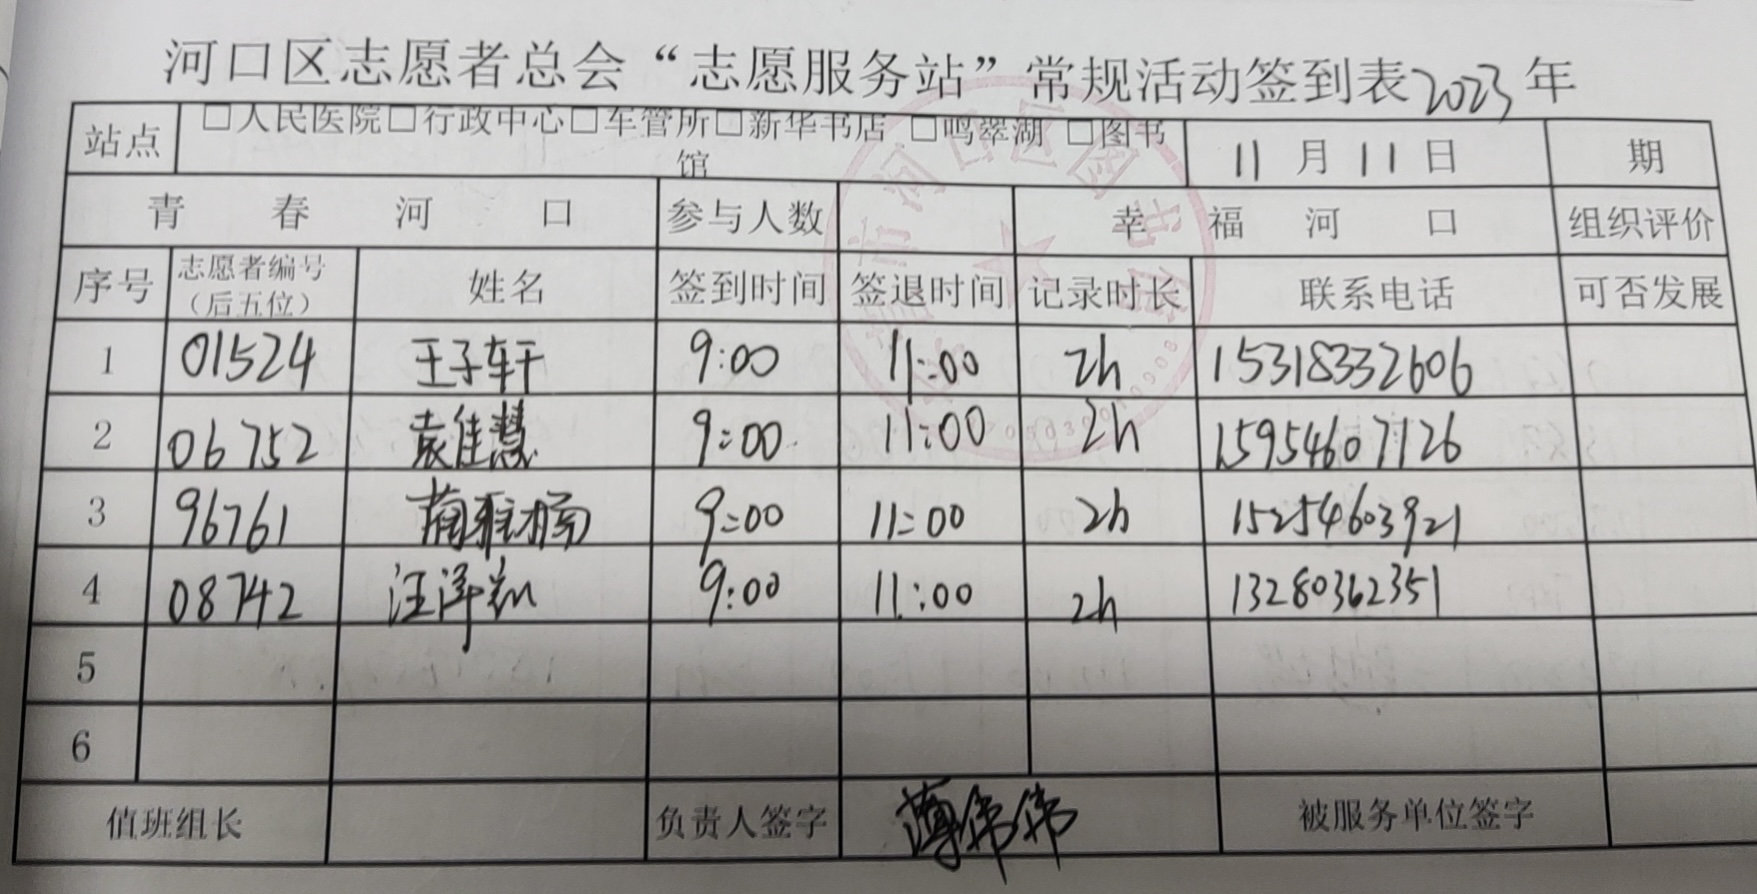 河口区志愿者总会“志愿服务站”常规活动签到表2023年
站点 □人民医院□行政中心□车管所□新华书店 □鸣翠湖 □图书馆 11月11日 期
青春河口 参与人数 幸福河口 组织评价
序号 志愿者编号（后五位） 姓名 签到时间 签退时间 记录时长 联系电话 可否发展
1 01524 王子轩 9:00 11:00 2h 15318332606
2 06752 袁佳慧 9:00 11:00 2h 15954607126
3 96761 9:00 11:00 2h 15254603921
4 08742 汪泽 9:00 11:00 2h 13280362351
5
6
值班组长 负责人签字 薄伟伟 被服务单位签字